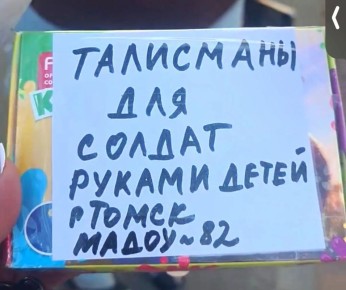 ТАЛИСМАНЫ
ДЛЯ
СОЛДАТ
РУКАМИ ДЕТЕЙ
г ТОМСК
МАДОУ~82